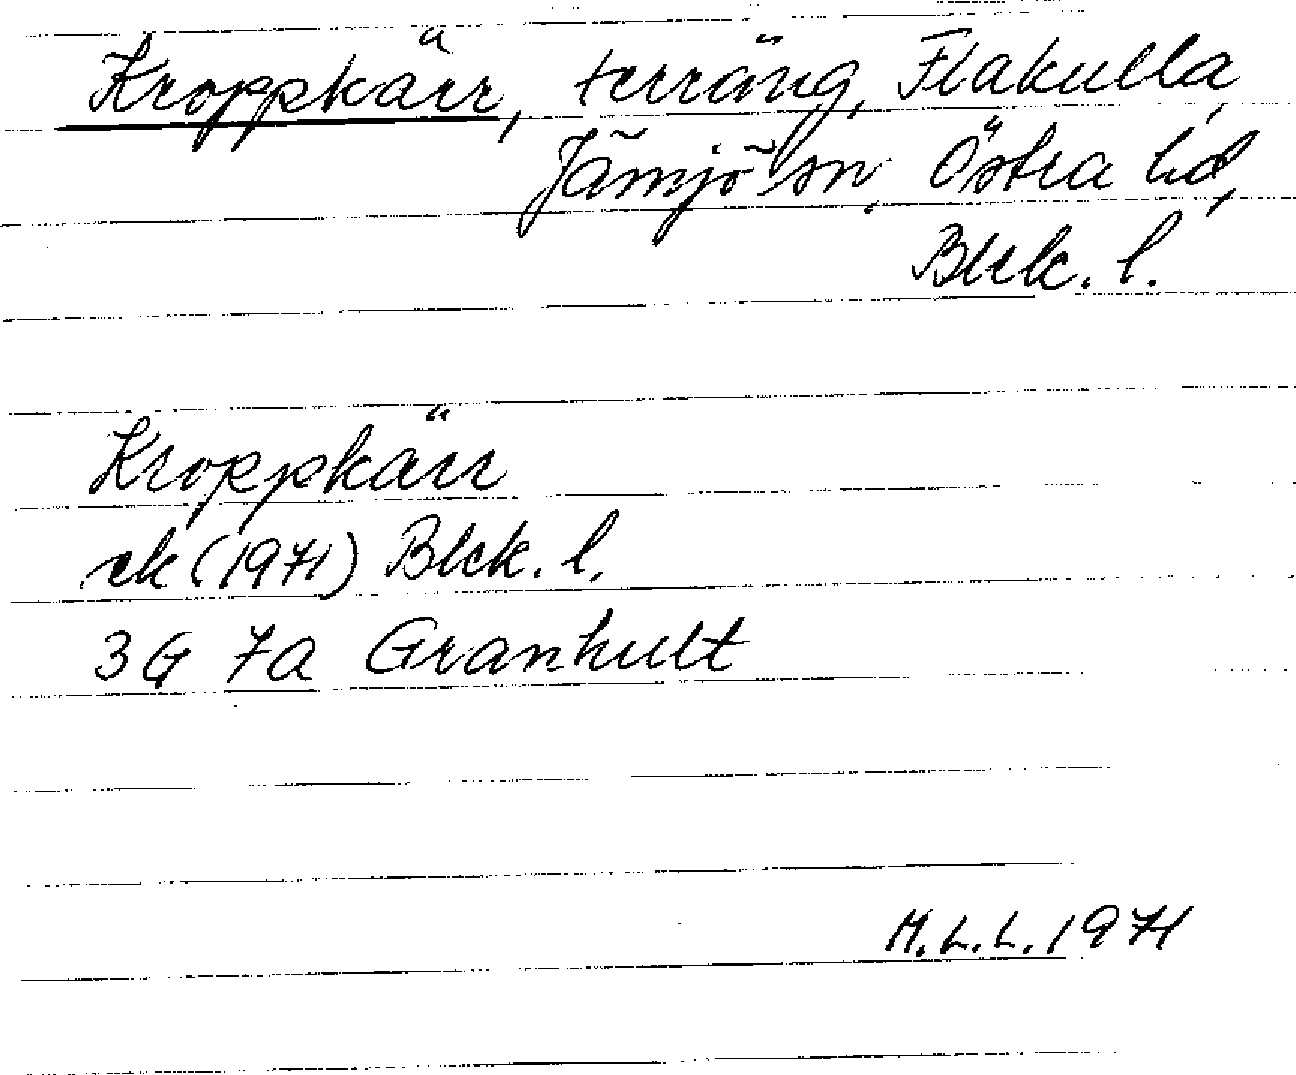 Kroppkärr, terräng, Flakulla,
Jämjö sn, Östra hd,
Blek. l.
Kroppkärr
ek (1971) Blek. l.
3G 7a Granhult
M.L.L. 1971